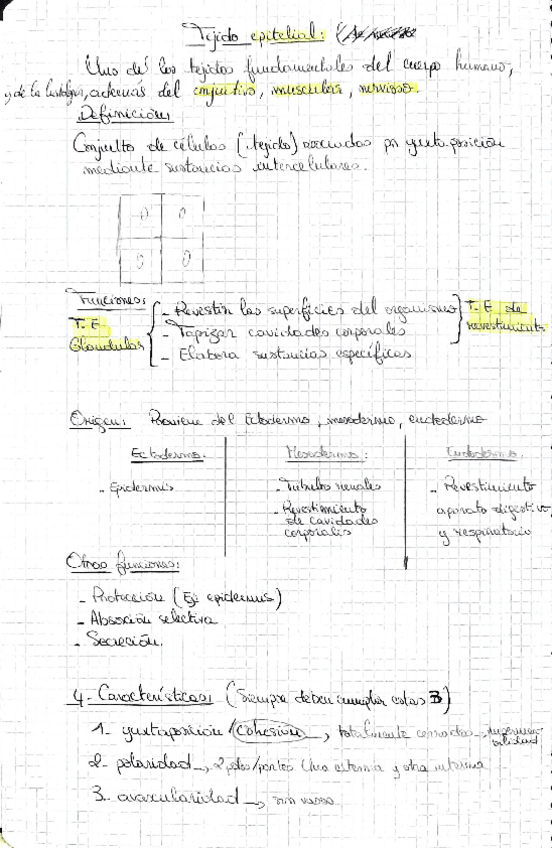 Tejido epitelial:
Uno de los tejidos fundamentales del cuerpo humano,
y de la histología, además del conjuntivo, muscular, nervioso.
Definición:
Conjunto de células (tejido) asociadas por yuxtaposición
mediante sustancias intercelulares.
Funciones:
T.E
Glandular
- Revestir las superficies del organismo
- Tapizar cavidades corporales
- Elabora sustancias específicas
T.E de
revestimiento
Origen: Proviene del Ectodermo, mesodermo, endodermo
Ectodermo.
- Epidermis
Mesodermo:
- Túbulos renales
- Revestimiento
de cavidades
corporales
Endodermo.
- Revestimiento
aparato digestivo
y respiratorio
Otras funciones:
- Protección (Ej epidermis)
- Absorción selectiva
- Secreción.
4- Características: (Siempre deben cumplir estas 3)
1- yuxtaposición / cohesión, totalmente cerradas
2- polaridad, 2 polos/partes Una externa y otra interna
3- avascularidad, sin vasos